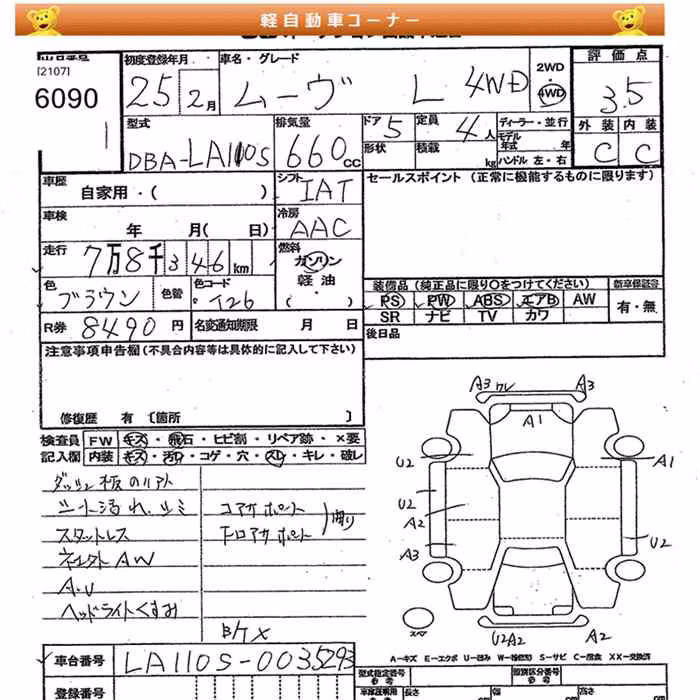 軽自動車コーナー
[2107]
6090
初度登録年月
25 2月
車名・グレード
ムーヴ L 4WD
2WD
4WD
評価点
3.5
外装 内装
C C
型式
DBA-LA110S
排気量
660cc
ドア 5
形状
定員 4人
積載 kg
ディーラー・並行
モデル年式 年
ハンドル 左・右
車歴
自家用・( )
シフト
IAT
セールスポイント (正常に機能するものに限ります)
車検
年 月( 日)
冷房
AAC
走行
7万8千346km
燃料
ガソリン
軽油
( )
色
ブラウン
色替
色コード
T26
装備品 (純正品に限り○をつけてください)
PS PW ABS エアB AW
SR ナビ TV カワ
新車保証書
有・無
R券 8490円
名変通知期限 月 日
後日品
注意事項申告欄 (不具合内容等は具体的に記入して下さい)
修復歴 有 〔箇所 〕
検査員記入欄
FW キズ・飛石・ヒビ割・リペア跡・×要
内装 キズ・汚れ・コゲ・穴・スレ・キレ・破レ
シート汚れ、シミ
スタットレス
AW
A・U
ヘッドライトくすみ
コアサポート
下コアサポート
A3 ワレ A3
A1
U2 A1
U2
A2
A3 U2
スペア
U2A2 A2
A-キズ E-エクボ U-凹み W-補修跡 S-サビ C-腐食 XX-交換済
車台番号
LA110S-0035293
型式指定番号
参考
類別区分番号
参考
登録番号
長さ
幅
高さ